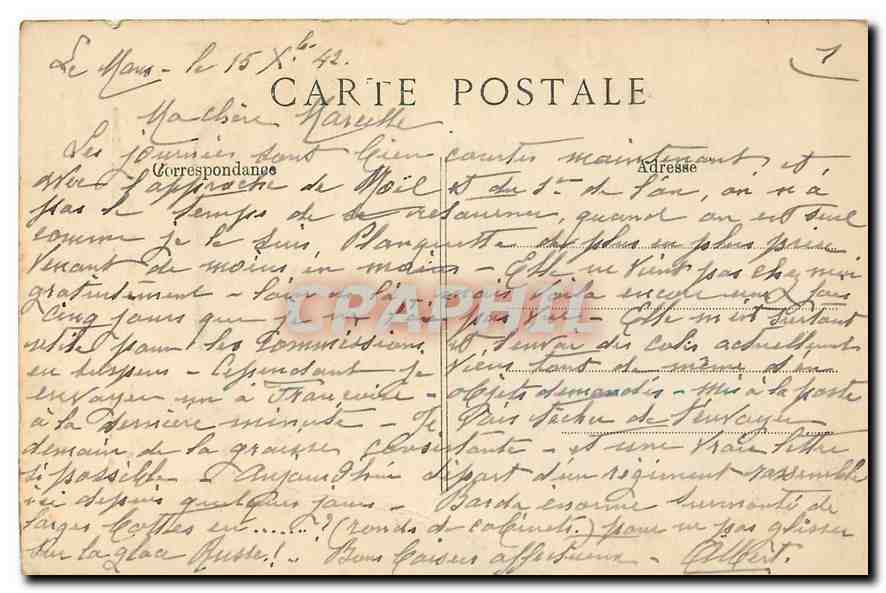 Le Mans - le 15 Xbre 42.
1
CARTE POSTALE
Ma chère Marcelle
Correspondance
Adresse
Les journées sont bien courtes maintenant et
avec l'approche de Noël et du 1er de l'an, on n'a
pas le temps de se retourner, quand on est seul
comme je le suis. Planquette de plus en plus prise
venant de moins en moins - Elle ne vient pas chez moi
gratuitement - loin de là, mais voilà encore une fois
cinq jours que je ne l'ai pas vue - Elle m'est surtout
utile pour les commissions et l'envoi des colis actuellement
en suspens - Cependant je viens tout de même d'en
envoyer un à Françoise - objets demandés - mis à la poste
à la dernière minute - Je vais tâcher de t'envoyer
demain de la graisse consistante - et une vraie lettre
si possible - Aujourd'hui départ d'un régiment rassemblé
ici depuis quelques jours - Barda énorme surmonté de
larges bottes en ......? (ronds de cabinets) pour ne pas glisser
sur la glace Russe! - Bons baisers affectueux - Albert.
CRAPHIL